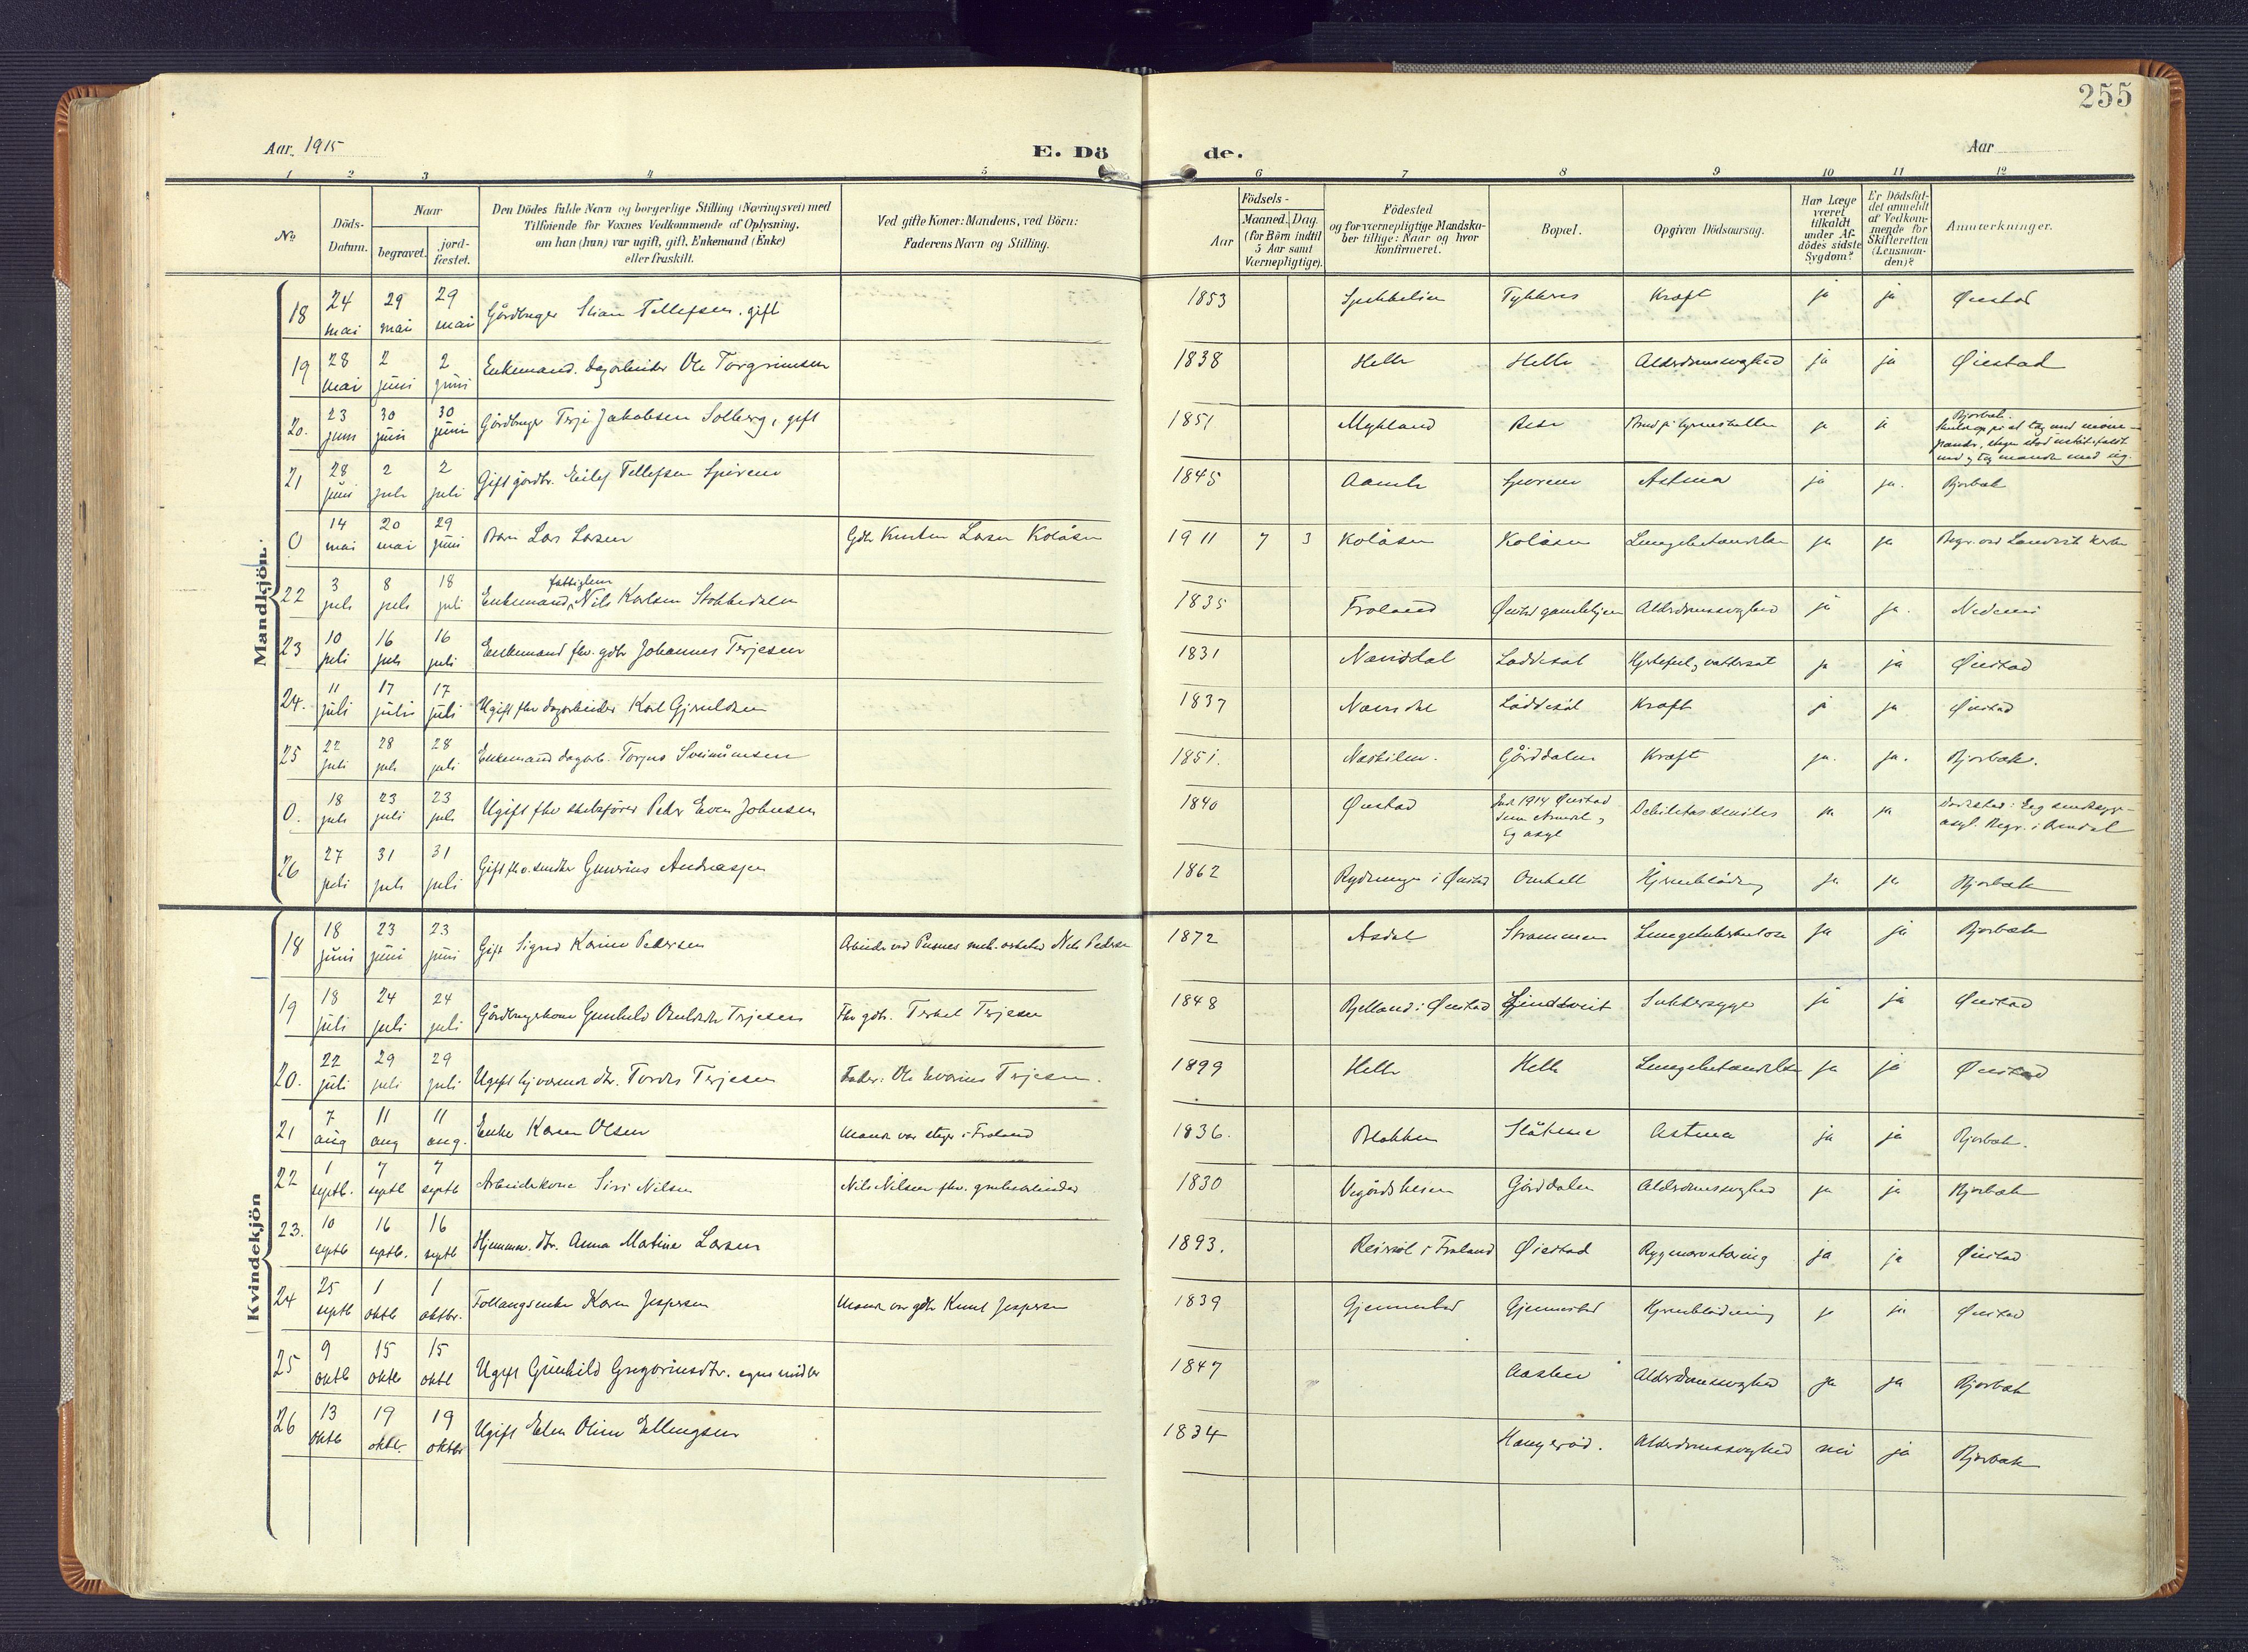 255
Aar 1915 E. Dö de. Aar
1 2 3 4 5 6 7 8 9 10 11 12
No Döds-Datum. Naar begravet. jord-fæstet. Den Dödes fulde Navn og borgerlige Stilling (Næringsvei) med Tilföiende for Voxnes Vedkommende af Oplysning, om han (hun) var ugift, gift, Enkemand (Enke) eller fraskilt. Ved gifte Koner: Mandens, ved Börn: Faderens Navn og Stilling. Födsels- Aar Maaned. Dag. (for Börn indtil 5 Aar samt Værnepligtige). Födested og for værnepligtige Mandskaber tillige: Naar og hvor konfirmeret. Bopæl. Opgiven Dödsaarsag. Har Læge været tilkaldt under Afdödes sidste Sygdom? Er Dödsfaldet anmeldt af Vedkommende for Skifteretten (Lensmanden)? Anmærkninger.
Mandkjön.
18 24 mai 29 mai 29 mai Gårdbruger Tellefsen. gift 1853 Kræft ja ja Øiestad
19 28 mai 2 juni 2 juni Enkemand. dagarbeider Ole Torgrimsen 1838 Helle Helle Alderdomssvaghed ja ja Øiestad
20. 23 juni 30 juni 30 juni Gårdbruger Terje Jakobsen Solberg, gift 1851 Mykland ja ja Bjorbæk.
21 28 juni 2 juli 2 juli Gift gårdbr. Eilef Tellefsen 1845 Astma ja ja. Bjorbæk
0 14 mai 20 mai 29 juni Barn Lars Larsen Gdbr. Larsen Kolåsen 1911 7 3 Kolåsen Kolåsen Lungebetændelse ja ja Begr. ved Landvik kirke
22 3 juli 8 juli 18 juli Enkemand, fattiglem Nils Karlsen Stokkedalen 1835 Froland Øiestad gamlehjem Alderdomssvaghed ja ja. Nedenes
23 10 juli 16 juli 16 juli Enkemand fhv. gdbr Johannes Terjesen 1831 Næsdal Løddesøl Hjertefeil og vattersot ja ja Øiestad
24. 11 juli 17 juli 17 juli Ugift fhv dagarbeider Karl Gjeruldsen 1837 Løddesøl Kræft ja ja Øiestad
25 22 juli 28 juli 28 juli Enkemand dagarb. Torjus Sveinunsen 1851. Næskilen. Gårddalen Kræft ja. ja. Bjorbæk.
0. 18 juli 23 juli 23 juli Ugift fhv skibsfører Peder Even Johnsen 1840 Øiestad Ind 1914 Øiestad siden Arendal, Eg asyl Debilitas senilis ja ja Dødssted: Eg sindssyge-asyl. Begr. i Arendal
26 27 juli 31 juli 31 juli Gift fhv. Andreassen 1862 i Øiestad Hjerneblødning ja ja Bjorbæk
Kvindekjön
18 18 juni 23 juni 23 juni Gift Sigrid Karine Pedersen Arbeider ved Pusnes mek. verksted Nils Pedersen 1872 Asdal Strømmen Lungetuberkulose ja ja Bjorbæk
19 18 juli 24 juli 24 juli Gårdbrugerkone Gunhild Terjesen Fhv gdbr. Terkel Terjesen 1848 Bjelland i Øiestad Sukkersyge ja ja Øiestad
20. 22 juli 29 juli 29 juli Ugift hjemmev. dtr. Tordis Terjesen Fader: Ole Severius Terjesen. 1899 Helle Helle Lungebetændelse ja ja Øiestad
21 7 aug 11 aug 11 aug. Enke Karen Olsen Manden var i Froland 1836. Blakken Astma ja ja Bjorbæk.
22 1 septb. 7 septb 7 septb Arbeiderkone Siri Nilsen Nils Nilsen fhv. grubearbeider 1830 Vegårdsheien Gårddalen Alderdomssvaghed ja ja Bjorbæk
23. 10 septb 16 septb. 16 septb Hjemmev. dtr. Anna Martine Larsen 1893. i Froland Øiestad Rygmarvstæring ja ja Øiestad
24 25 septb 1 oktb 1 oktbr. Follaugsenke Karen Jespersen Manden var gdbr Knut Jespersen 1839 Gjennestad Gjennestad Hjerneblødning ja ja Øiestad
25 9 oktb 15 oktb 15 oktb Ugift Gunhild Gregoriusdtr. egne midler 1847 Alderdomssvaghed ja ja Bjorbæk
26 13 oktb 19 oktb. 19 oktbr Ugift Elen Oline Ellingsen 1834 Alderdomssvaghed nei ja Bjorbæk